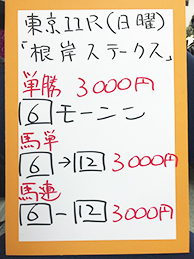 東京11R(日曜)
「根岸ステークス」
単勝 3000円
6 モーニン
馬単
6→12 3000円
馬連
6-12 3000円